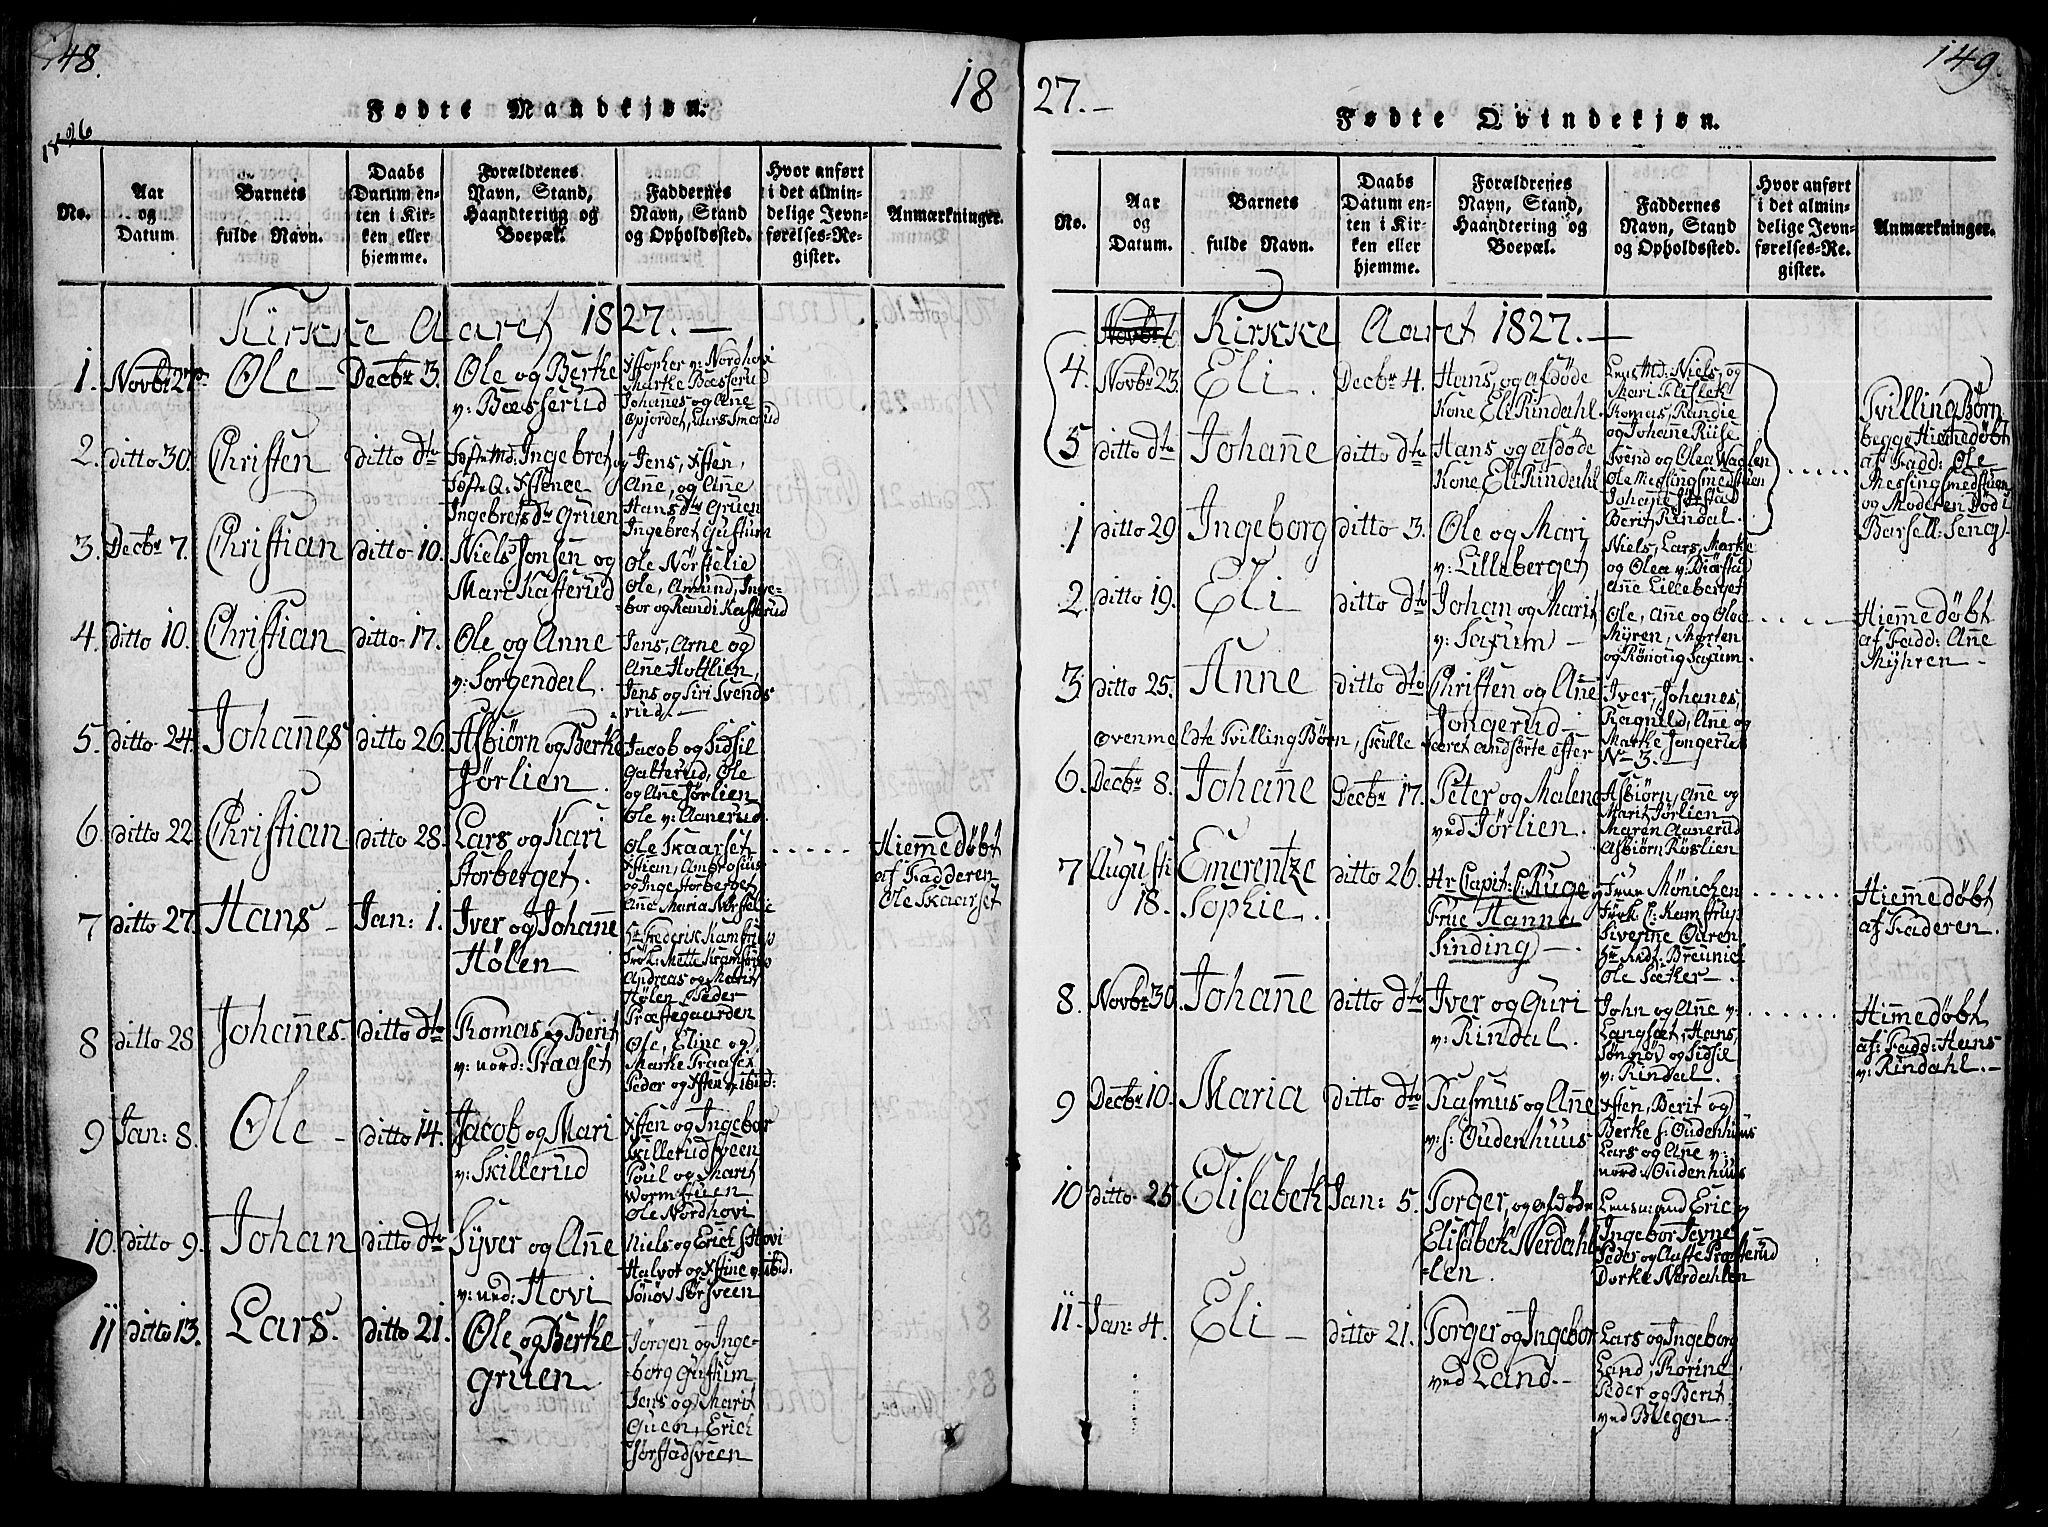 148.
18
Fødte Mandekjøn.
1826
No.
Aar
og
Datum.
Barnets
fulde Navn.
Daabs
Datum en-
ten i Kir-
ken eller
hjemme.
Forældrenes
Navn, Stand,
Haandtering og
Boepæl.
Faddernes
Navn, Stand
og Opholdssted.
Hvor anført
i det almin-
delige Jevn-
førelses-Re-
gister.
Anmærkninger.
Kirkke Aaret 1827. —
1. Novbr 27de Ole — Decbr 3.
Ole og Berthe
v: Bæsserud
Xstopher v: Nordhovi
Marthe Bæsserud
Johannes og Ane
Opjordet, Lars Smerud
2. ditto 30. Christen ditto dto
Ingebret og
Ingebrets dr Gruen
Jens, Xsten,
Ane, og Ane
Hans dr Gruen
Ingebret Gustum
3. Decbr 7. Christian ditto 10.
Niels Jonsen og
Mari Kasterud
Ole Nørstelie
Ole, Amund, Inge-
bor og Randi Kasterud
4. ditto 10. Christian ditto 17.
Ole og Anne
v: Sorgendal.
Jens, Arne og
Ane Holtlien,
Jens og Siri Svends
rud. —
5. ditto 24. Johannes ditto 26.
Asbiørn og Berthe
Jørlien.
Jacob og Sidsil
Galterud, Ole
og Ane Jørlien
Ole v: Aanerud.
6. ditto 22. Christian ditto 28.
Lars og Kari
Storberget.
Ole Skaarset
Xstian, Ambrosius
og Inge Storberget
Ane Maria Nørstelie
Hiemmedøbt
af Fadderen
Ole Skaarset
7 ditto 27. Hans — Jan: 1.
Iver og Johanne
Hølen
Hr Frederik Kamstrup
Frøk: Mette Kamstrup
Andreas og Marit
Hølen Peder
Præstegaarden
8 ditto 28 Johannes. ditto dto
Thomas og Berit
v: nord: Traaset
Ole, Eline og
Marthe Traaset
Peder og Xsten v: ibid:
9 Jan: 8. Ole — ditto 14.
Jacob og Mari
v: Skillerud
Xsten og Ingebor
Skillerudsveen
Poul og Marit
Wormstuen
Ole Nordhovi
10. ditto 9. Johan ditto dto
Syver og Ane
v: ned: Hovi
Niels og Erich S: Hovi
Halvor og Xstine v: ibid.
Sønøv Sørsveen
11 ditto 13. Lars. ditto 21.
Ole og Berthe
Gruen
Jørgen og Inge-
borg Gustum,
Jens og Marit
Gruen, Erich
Jørstadsveen
149.
27. —
Fødte Qvindekjøn.
No.
Aar
og
Datum.
Barnets
fulde Navn.
Daabs
Datum en-
ten i Kir-
ken eller
hjemme.
Forældrenes
Navn, Stand,
Haandtering og
Boepæl.
Faddernes
Navn, Stand
og Opholdssted.
Hvor anført
i det almin-
delige Jevn-
førelses-Re-
gister.
Anmærkninger.
Kirkke Aaret 1827. —
4. Novbr 23. Eli. Decbr 4.
Hans, og afdøde
Kone Eli Rindahl.
Lens Md: Niels, og
Mari Klifleth
Thomas, Randie
og Johanne Riise
5 ditto dto Johanne ditto dto
Hans og afdøde
Kone Eli Rindahl
Svend og Olea Waglen
Ole Messingmedstuen
Berit Rindal.
Tvilling Børn
begge Hiemedøbt
af Fadd: Ole
Messingmedstuen
og Moderen død i
Barsell: Seng. —
1 ditto 29 Ingeborg ditto 3.
Ole og Mari
v: Lilleberget
Niels, Lars, Marthe
og Olea v: Biørstad
Ane Lilleberget
2. ditto 19. Eli ditto dto
Johan og Marit
v: Saxum —
Ole, Ane og Oloa
Myren, Morten
og Rønoug Saxum.
Hiemmedøbt
af Fadd: Ane
Myhren —
3 ditto 25. Anne ditto dto
Christen og Ane
Jongerud —
Iver, Johanes,
Ragnild, Ane og
Marthe Jongerud
Ovenmeldte Tvilling Børn, skulle været andførte efter
No 3. —
6. Decbr 8. Johanne Decbr 17.
Peter og Malene
ved Jørlien.
Asbiørn, Ane og
Marit Jørlien
Maren Aanerud
Asbiørn Røslien
7 Augusti
18.
Emerentze
Sophie.
ditto 26.
Hr Capit: C: Ruge og
Frue Hanna
Sinding —
Frue Mønichen
Frøk C: Kamstrup
Siverine Qvren
Hr Kdt. Breunich
Ole Sæther —
Hiemmedøbt
af Faderen.
8. Novbr 30. Johanne ditto dto
Iver og Guri
v: Rindal.
John og Ane v:
Langsæt, Hans,
Sønnøv og Sidsil
v: Rindal.
Himedøbt
af: Fadd: Hans
v: Rindahl. —
9 Decbr 10. Maria ditto dto
Rasmus og Ane
v: s: Oudenhuus
Xsten, Berit og
Berthe s: Oudenhuus
Lars og Ane v:
nord: Oudenhuus
10 ditto 25. Elisabeth Jan: 5.
Torger, og afdøde
Elisabeth Nerdahl-
len.
Lensmand Eric og
Ingebor Jevne
Peder og Aaste Præsterud
Dorthe Nerdahlen
11. Jan: 4. Eli — ditto 21.
Torger og Ingebor
ved Land. —
Lars og Ingeborg
Land, Thorine
Peder og Berit
ved Blegen —